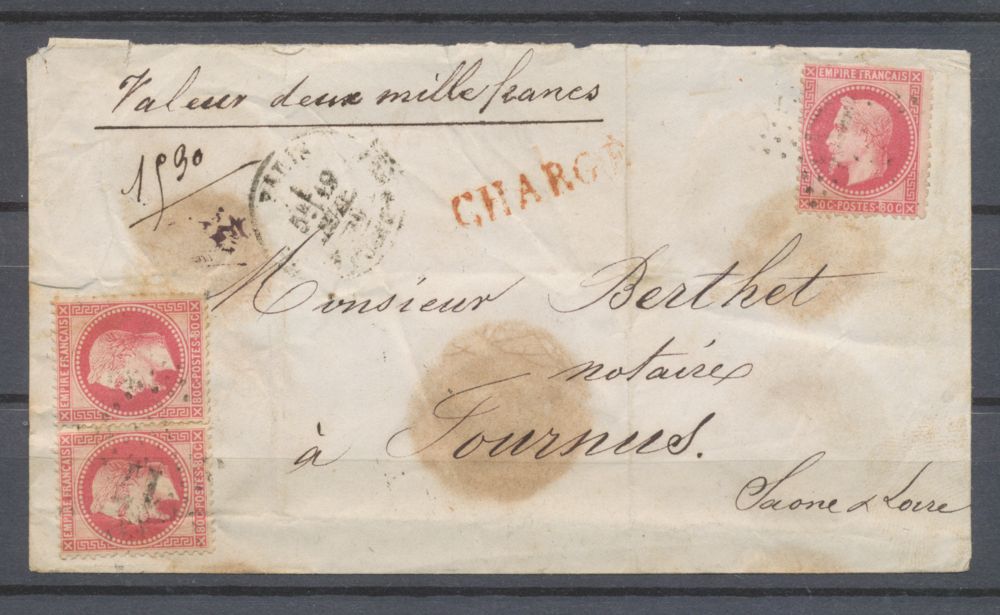 Valeur deux mille francs
1530
PARIS
CHARGÉ
EMPIRE FRANÇAIS
80C·POSTES·80C
Monsieur Berthet
notaire
à Tournus.
Saone & Loire
EMPIRE FRANÇAIS
80C·POSTES·80C
EMPIRE FRANÇAIS
80C·POSTES·80C